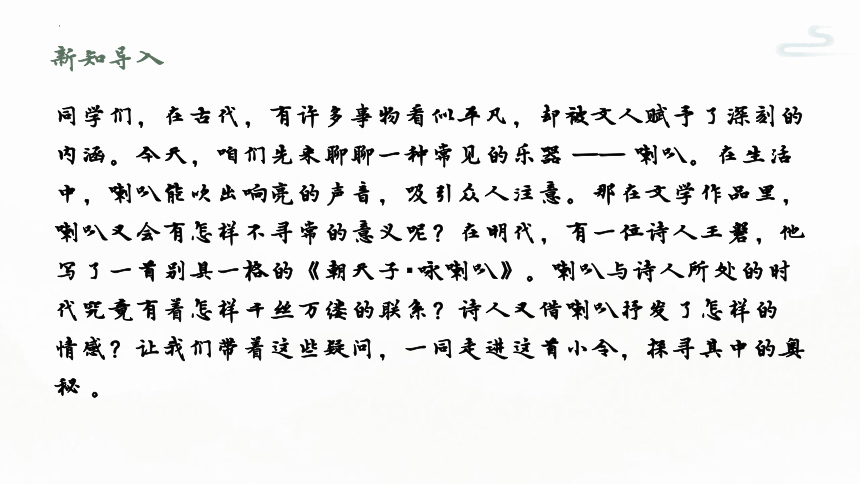 新知导入
同学们，在古代，有许多事物看似平凡，却被文人赋予了深刻的
内涵。今天，咱们先来聊聊一种常见的乐器 —— 喇叭。在生活
中，喇叭能吹出响亮的声音，吸引众人注意。那在文学作品里，
喇叭又会有怎样不寻常的意义呢？在明代，有一位诗人王磐，他
写了一首别具一格的《朝天子·咏喇叭》。喇叭与诗人所处的时
代究竟有着怎样千丝万缕的联系？诗人又借喇叭抒发了怎样的
情感？让我们带着这些疑问，一同走进这首小令，探寻其中的奥
秘 。